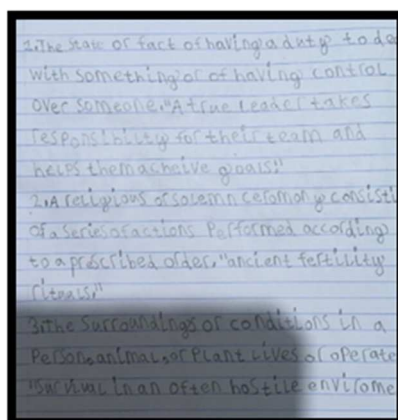 1.The state or fact of having a duty to dea
with something or of having control
over someone."A true leader takes
responsibility for their team and
helps them acheive goals."
2.A religious or solemn ceromony consisti
of a series of actions Performed according
to a prescribed order."ancient fertility
rituals."
3.the Surroundings or conditions in a
Person,animal,or Plant Lives or operate
"survival in an often hostile envirome